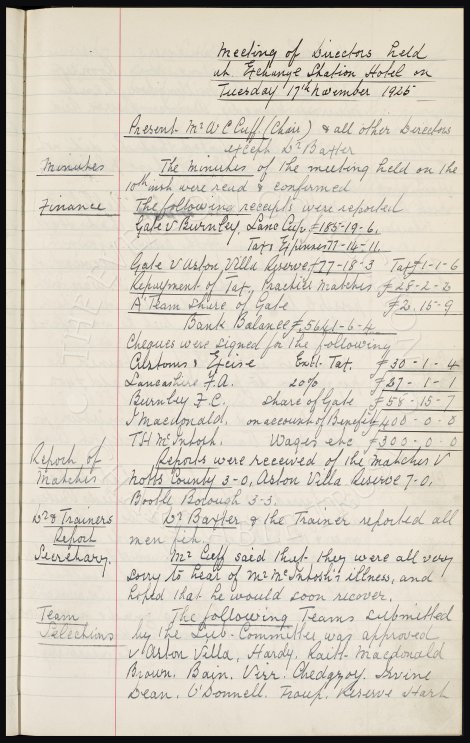 Meeting of Directors held
at Exchange Station Hotel on
Tuesday 17th November 1925
Present Mr W C Cuff (Chair) & all other Directors
except Dr Baxter
Minutes The minutes of the meeting held on the
10th inst were read & confirmed
Finance The following receipts were reported
Gate v Burnley. Lancs Cup. £185-19-6.
Tax & Expenses 77-14-11.
Gate v Aston Villa Reserve £77-18-3 Tax £1-1-6
Repayment of Tax, Practice Matches £28-2-2
A Team share of Gate £2.15-9
Bank Balance £5641-6-4
Cheques were signed for the following
Customs & Excise Ent. Tax. £30-1-4
Lancashire F.A. 20% £37-1-1
Burnley F.C. share of Gate £58-15-7
J Macdonald. on account of Benefit £400-0-0
T H McIntosh. Wages etc £300-0-0
Report of Reports were received of the matches v
Matches Notts County 3-0, Aston Villa Reserve 7-0.
Bootle Borough 3-3.
Dr & Trainers Dr Baxter & the Trainer reported all
Report men fit.
Secretary. Mr Cuff said that they were all very
sorry to hear of Mr McIntosh's illness, and
hoped that he would soon recover.
Team The following Teams submitted
Selections by the Sub-Committee was approved
v Aston Villa, Hardy. Raitt. Macdonald
Brown. Bain. Virr. Chedgzoy. Irvine
Dean. O'Donnell. Troup. Reserve Hart